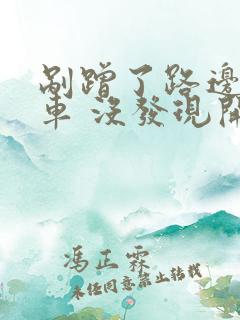 剮蹭了路邊
車 沒發現開
馮正霖
未經同意禁止轉載